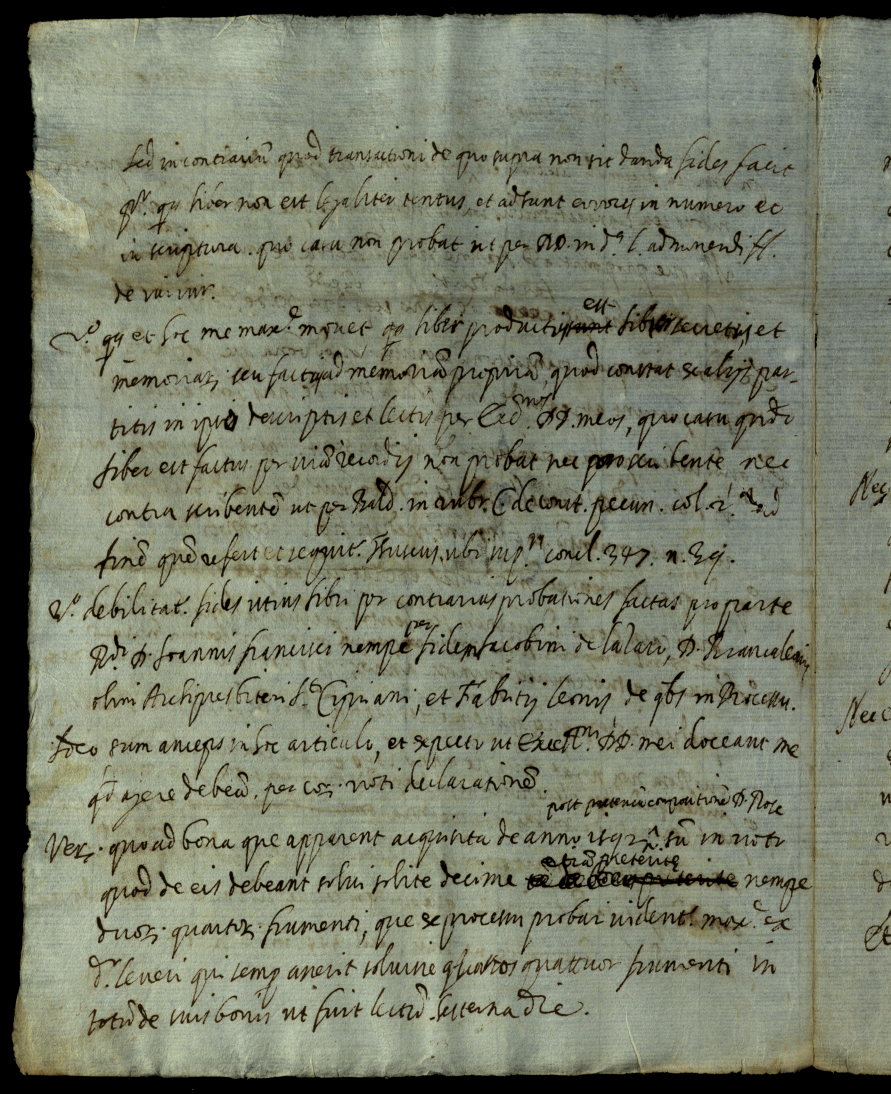 sed in contrariũ quod transactioni de quo supra non sit danda fides facit
pᵒ. qa liber non est legaliter tentus, et adsunt errores in numero et
in scriptura. quo casu non probat ut per DD. in d.ᵃ l. admonendi ff.
de iureiur.
2.ᵒ qa et hoc me max.ᵉ mouet, qa liber productus est liber secretus, et
memoriar; seu factus ad memoriã propriã, quod constat ex alijs par-
titis in ipso descriptis et lectis per Ex.mos DD. meos, quo casu
liber est factus per viã recordij non probat nec pro scribente nec
contra scribentẽ ut per Bald. in rubr. C de const. pecun. col. 2.ᵃ ad
finẽ quẽ refert et sequit. ubi sup.ᵃ consil. 347. n.
3.ᵒ debilitat. fides istius libri per contrarias probationes factas pro parte
R.di D. Joannis francisci nempe per fidem Jacobini de D.
olim Archipresbiteri S.ti Cipriani, et Fabritij leonis de qbs in Processu.
Ideo sum anceps in hoc articulo, et expecto ut Exc.mi DD. mei doceant me
qd agere debeã. per eor; voti declarationẽ.
post pretensã compositionẽ D. Rose
Ver; quo ad bona que apparent acquisita de anno 1592 sũ in voto
etiã preterite
quod de eis debeant solui solite decime nempe
duor; quartor; frumenti, que ex processu probari uident. max.ᵉ ex
qui semp asserit soluisse quartos quattuor frumenti in
totũ de suis bonis ut fuit lectũ hesterna die.
Nec
Nec